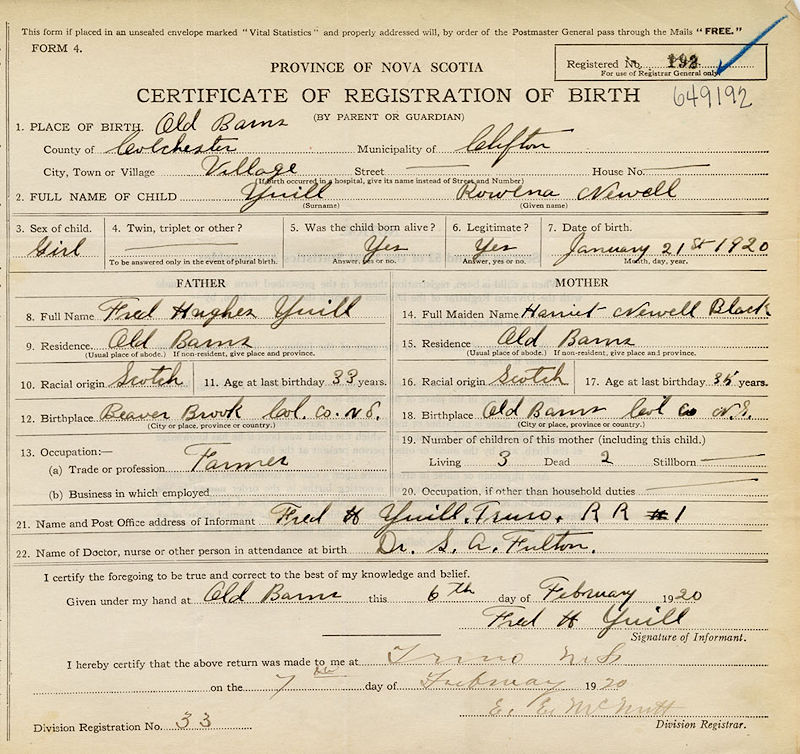 This form if placed in an unsealed envelope marked "Vital Statistics" and properly addressed will, by order of the Postmaster General pass through the Mails "FREE."
FORM 4.
Registered No. 192
For use of Registrar General only.
PROVINCE OF NOVA SCOTIA
CERTIFICATE OF REGISTRATION OF BIRTH 649192
(BY PARENT OR GUARDIAN)
1. PLACE OF BIRTH. Old Barns
County of Colchester Municipality of Clifton
City, Town or Village Village Street House No.
(If birth occurred in a hospital, give its name instead of Street and Number)
2. FULL NAME OF CHILD Yuill Rowena Newell
(Surname) (Given name)
3. Sex of child. 4. Twin, triplet or other? 5. Was the child born alive? 6. Legitimate? 7. Date of birth.
Girl Yes Yes January 21st 1920
To be answered only in the event of plural birth. Answer, yes or no. Answer, yes or no. Month, day, year.
FATHER MOTHER
8. Full Name Fred Hughes Yuill 14. Full Maiden Name Harriet Newell Black
9. Residence. Old Barns 15. Residence. Old Barns
(Usual place of abode.) If non-resident, give place and province. (Usual place of abode.) If non-resident, give place and province.
10. Racial origin Scotch 11. Age at last birthday 33 years. 16. Racial origin Scotch 17. Age at last birthday 35 years.
12. Birthplace Beaver Brook Col. Co. N S. 18. Birthplace Old Barns Col Co N.S.
(City or place, province or country.) (City or place, province or country.)
13. Occupation:— 19. Number of children of this mother (including this child.)
(a) Trade or profession Farmer Living 3 Dead 2 Stillborn
(b) Business in which employed 20. Occupation, if other than household duties
21. Name and Post Office address of Informant Fred H Yuill. Truro. R R #1
22. Name of Doctor, nurse or other person in attendance at birth Dr. S. A. Fulton.
I certify the foregoing to be true and correct to the best of my knowledge and belief.
Given under my hand at Old Barns this 6th day of February 1920
Fred H Yuill
Signature of Informant.
I hereby certify that the above return was made to me at Truro N.S
on the 7th day of February 1920
E. E. McNutt
Division Registration No. 33 Division Registrar.